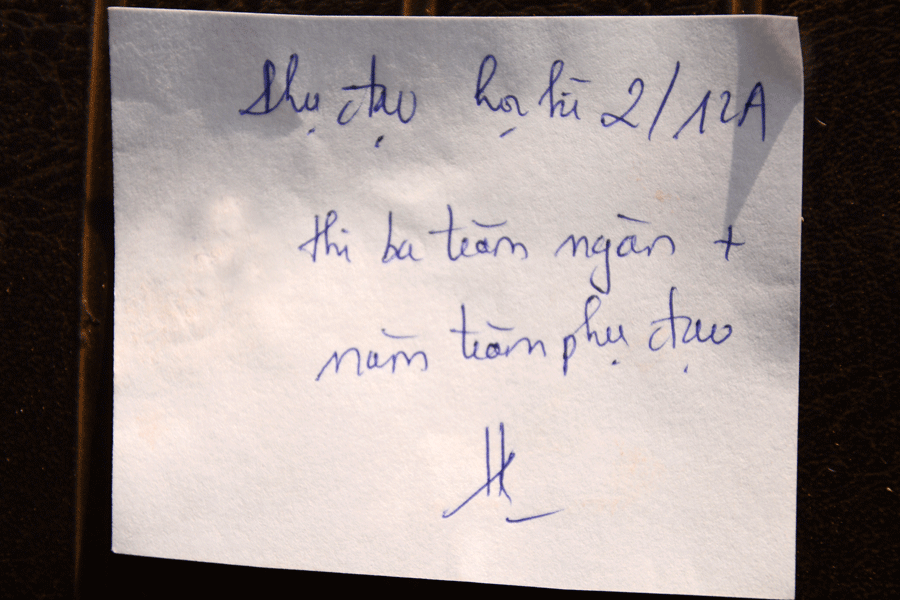 Phụ đạo học kì 2/12A
thi ba trăm ngàn +
năm trăm phụ đạo